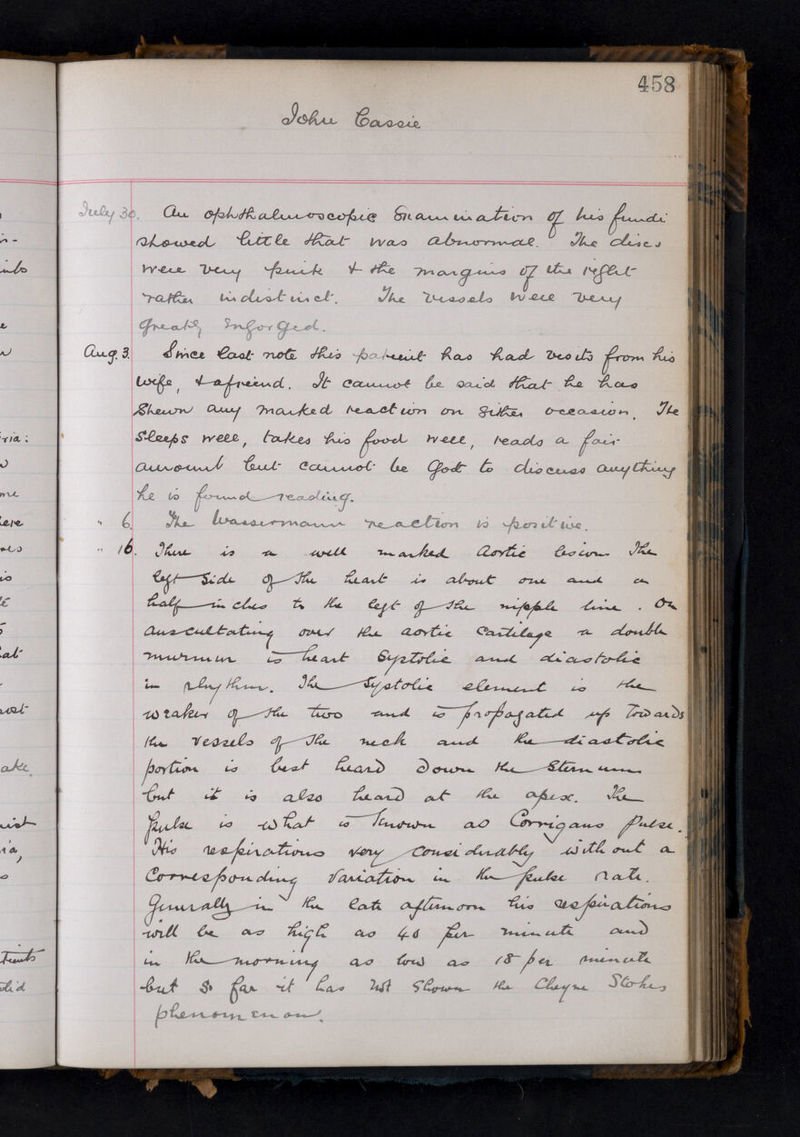 458
John Cassie
July 30. An ophthalmoscopic Examination of his fundi
showed little that was abnormal. The discs
were very pink & the margins of the right
rather indistinct. The vessels were very
greatly Engorged.
Aug. 3. Since last note this patient has had visits from his
wife, & a friend. It cannot be said that he has
Shewn any marked reaction on Either occasion. He
Sleeps well, takes his food well, reads a fair
amount but cannot be got to discuss anything
he is found reading.
" 6. The Wassermann reaction is positive.
" 16. There is a well marked Aortic lesion. The
left Side of the heart is about one and a
half inches to the left of the nipple line. On
Auscultating over the aortic Cartilage a double
murmur is heart Systolic and diastolic
in rhythm. The Systolic element is the
weaker of the two and is propagated up Towards
the vessels of the neck and the diastolic
portion is best heard Down the Sternum
but it is also heard at the apex. The
pulse is what is known as Corrigans pulse.
His respirations vary considerably without a
Corresponding Variation in the pulse rate.
Generally in the late afternoon his respirations
will be as high as 40 per minute and
in the morning as low as 18 per minute
but So far it has not Shown the Cheyne Stokes
phenomenon.